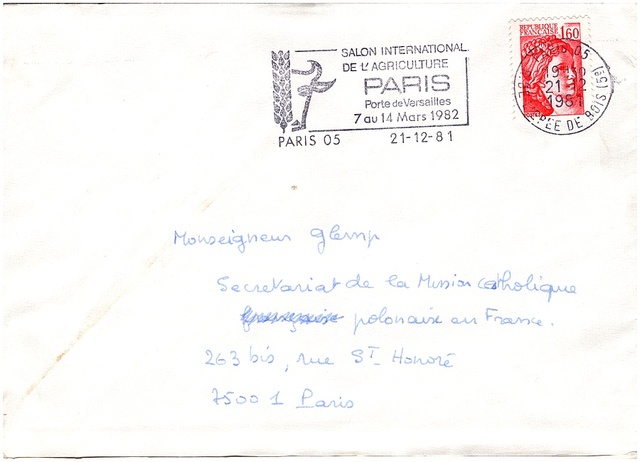 SALON INTERNATIONAL
DE L'AGRICULTURE
PARIS
Porte de Versailles
7 au 14 Mars 1982
PARIS 05 21-12-81
REPUBLIQUE
FRANÇAISE 1,60
PARIS 05
21-12
1981
EPEE DE BOIS (5e)
Monseigneur Glemp
Secretariat de la Mission Catholique
française polonaise en France.
263 bis, rue St Honoré
75001 Paris